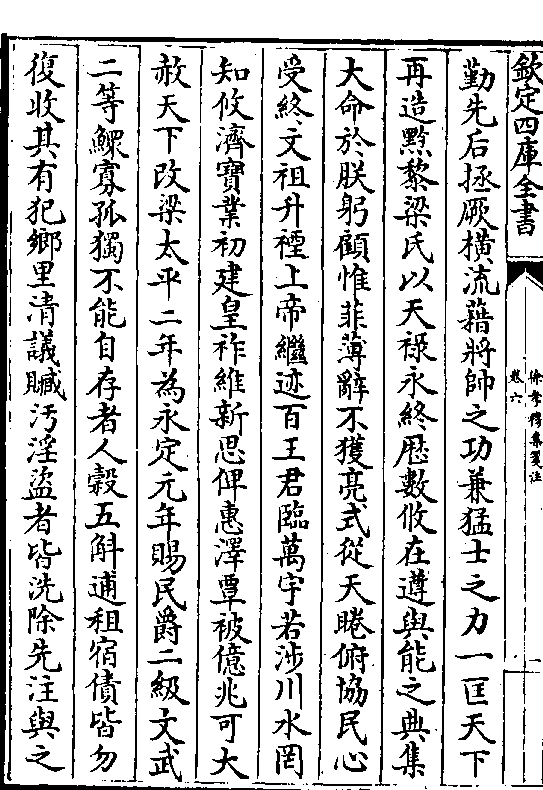 欽定四庫全書
徐孝穆集箋注
卷六
一
勤先后拯厥橫流藉將帥之功兼猛士之力一匡天下
再造黔黎梁氏以天祿永終厯數攸在遵與能之典集
大命於朕躬顧惟菲薄辭不獲亮式從天睠俯協民心
受終文祖升禋上帝繼迹百王君臨萬宇若涉川水罔
知攸濟寶業初建皇祚維新思俾惠澤覃被億兆可大
赦天下改梁太平二年為永定元年賜民爵二級文武
二等鰥寡孤獨不能自存者人穀五斛逋租宿債皆勿
復收其有犯鄉里清議贓汚淫盜者皆洗除先注與之